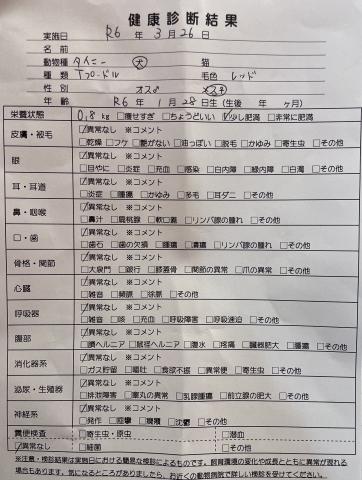 健康診断結果
実施日 R6年 3月26日
名前
動物種 タイニー 犬 猫
種類 Tプードル 毛色 レッド
性別 オス♂ メス♀
年齢 R6年 1月28日生(生後 年 ヶ月)
栄養状態 0.8kg □痩せすぎ □ちょうどいい ☑少し肥満 □非常に肥満
皮膚・被毛 ☑異常なし ※コメント
□乾燥 □フケ □艶がない □油っぽい □脱毛 □かゆみ □寄生虫 □その他
眼 ☑異常なし ※コメント
□目やに □炎症 □充血 □感染 □白内障 □緑内障 □白濁 □その他
耳・耳道 ☑異常なし ※コメント
□炎症 □腫瘍 □かゆみ □多毛 □耳ダニ □その他
鼻・咽喉 ☑異常なし ※コメント
□鼻汁 □扁桃線 □軟口蓋 □リンパ線の腫れ □その他
口・歯 ☑異常なし ※コメント
□歯石 □歯の欠損 □腫瘍 □潰瘍 □リンパ線の腫れ □その他
骨格・関節 ☑異常なし ※コメント
□大泉門 □跛行 □膝蓋骨 □関節の異常 □爪の異常 □その他
心臓 ☑異常なし ※コメント
□雑音 □頻脈 □徐脈 □その他
呼吸器 ☑異常なし ※コメント
□雑音 □咳 □充血 □呼吸障害 □呼吸速迫 □その他
腹部 ☑異常なし ※コメント
□臍ヘルニア □鼠径ヘルニア □腹水 □疼痛 □臓器肥大 □腫瘍 □その他
消化器系 ☑異常なし ※コメント
□ガス貯留 □嘔吐 □食欲不振 □異常便 □寄生虫 □その他
泌尿・生殖器 ☑異常なし ※コメント
□排泄障害 □睾丸の異常 □乳腺腫瘍 □前立腺の肥大 □その他
神経系 ☑異常なし ※コメント
□発作 □痙攣 □沈鬱 □その他
糞便検査 □寄生虫・原虫 □潜血
☑異常なし □細菌 □その他
※注意・検診結果は実施日における簡易な検診によるものです。飼育環境の変化や成長とともに異常が現れる
場合もあります。気になるところがありましたら、お近くの動物病院で詳しい検診を受けてください。